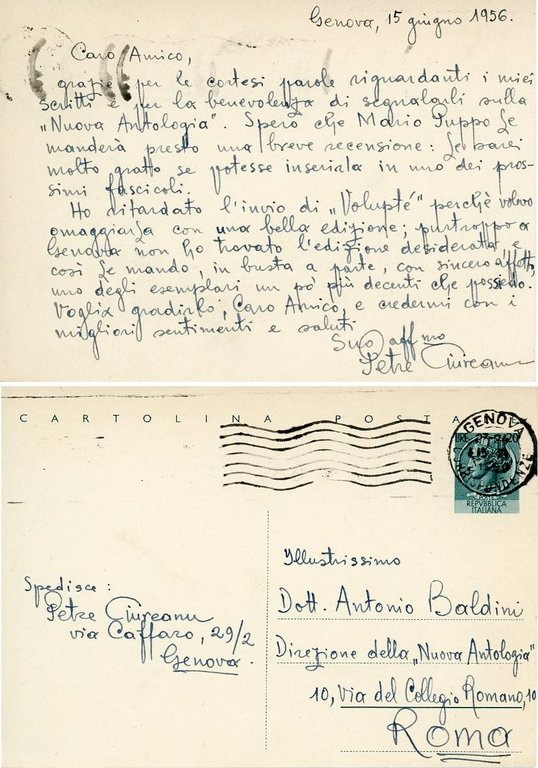 Genova, 15 giugno 1956.
Caro Amico,
grazie per le cortesi parole riguardanti i miei
scritti e per la benevolenza di segnalarli sulla
„Nuova Antologia". Spero che Mario Puppo Le
manderà presto una breve recensione: Le sarei
molto gratto se potesse inserirla in uno dei pros-
simi fascicoli.
Ho ritardato l'invio di „Volupté" perchè volevo
omaggiarLa con una bella edizione; purtroppo a
Genova non ho trovato l'edizione desiderata e
così Le mando, in busta a parte, con sincero affetto,
uno degli esemplari un po' più decenti che possiedo.
Voglia gradirlo, Caro Amico, e credermi con i
migliori sentimenti e saluti
Suo aff/mo
Petre Ciureanu
CARTOLINA POSTALE
GENOVA
REPVBBLICA
ITALIANA
Illustrissimo
Dott. Antonio Baldini
Direzione della „Nuova Antologia"
10, Via del Collegio Romano, 10
Roma
Spedisce:
Petre Ciureanu
via Caffaro, 29/2
Genova.